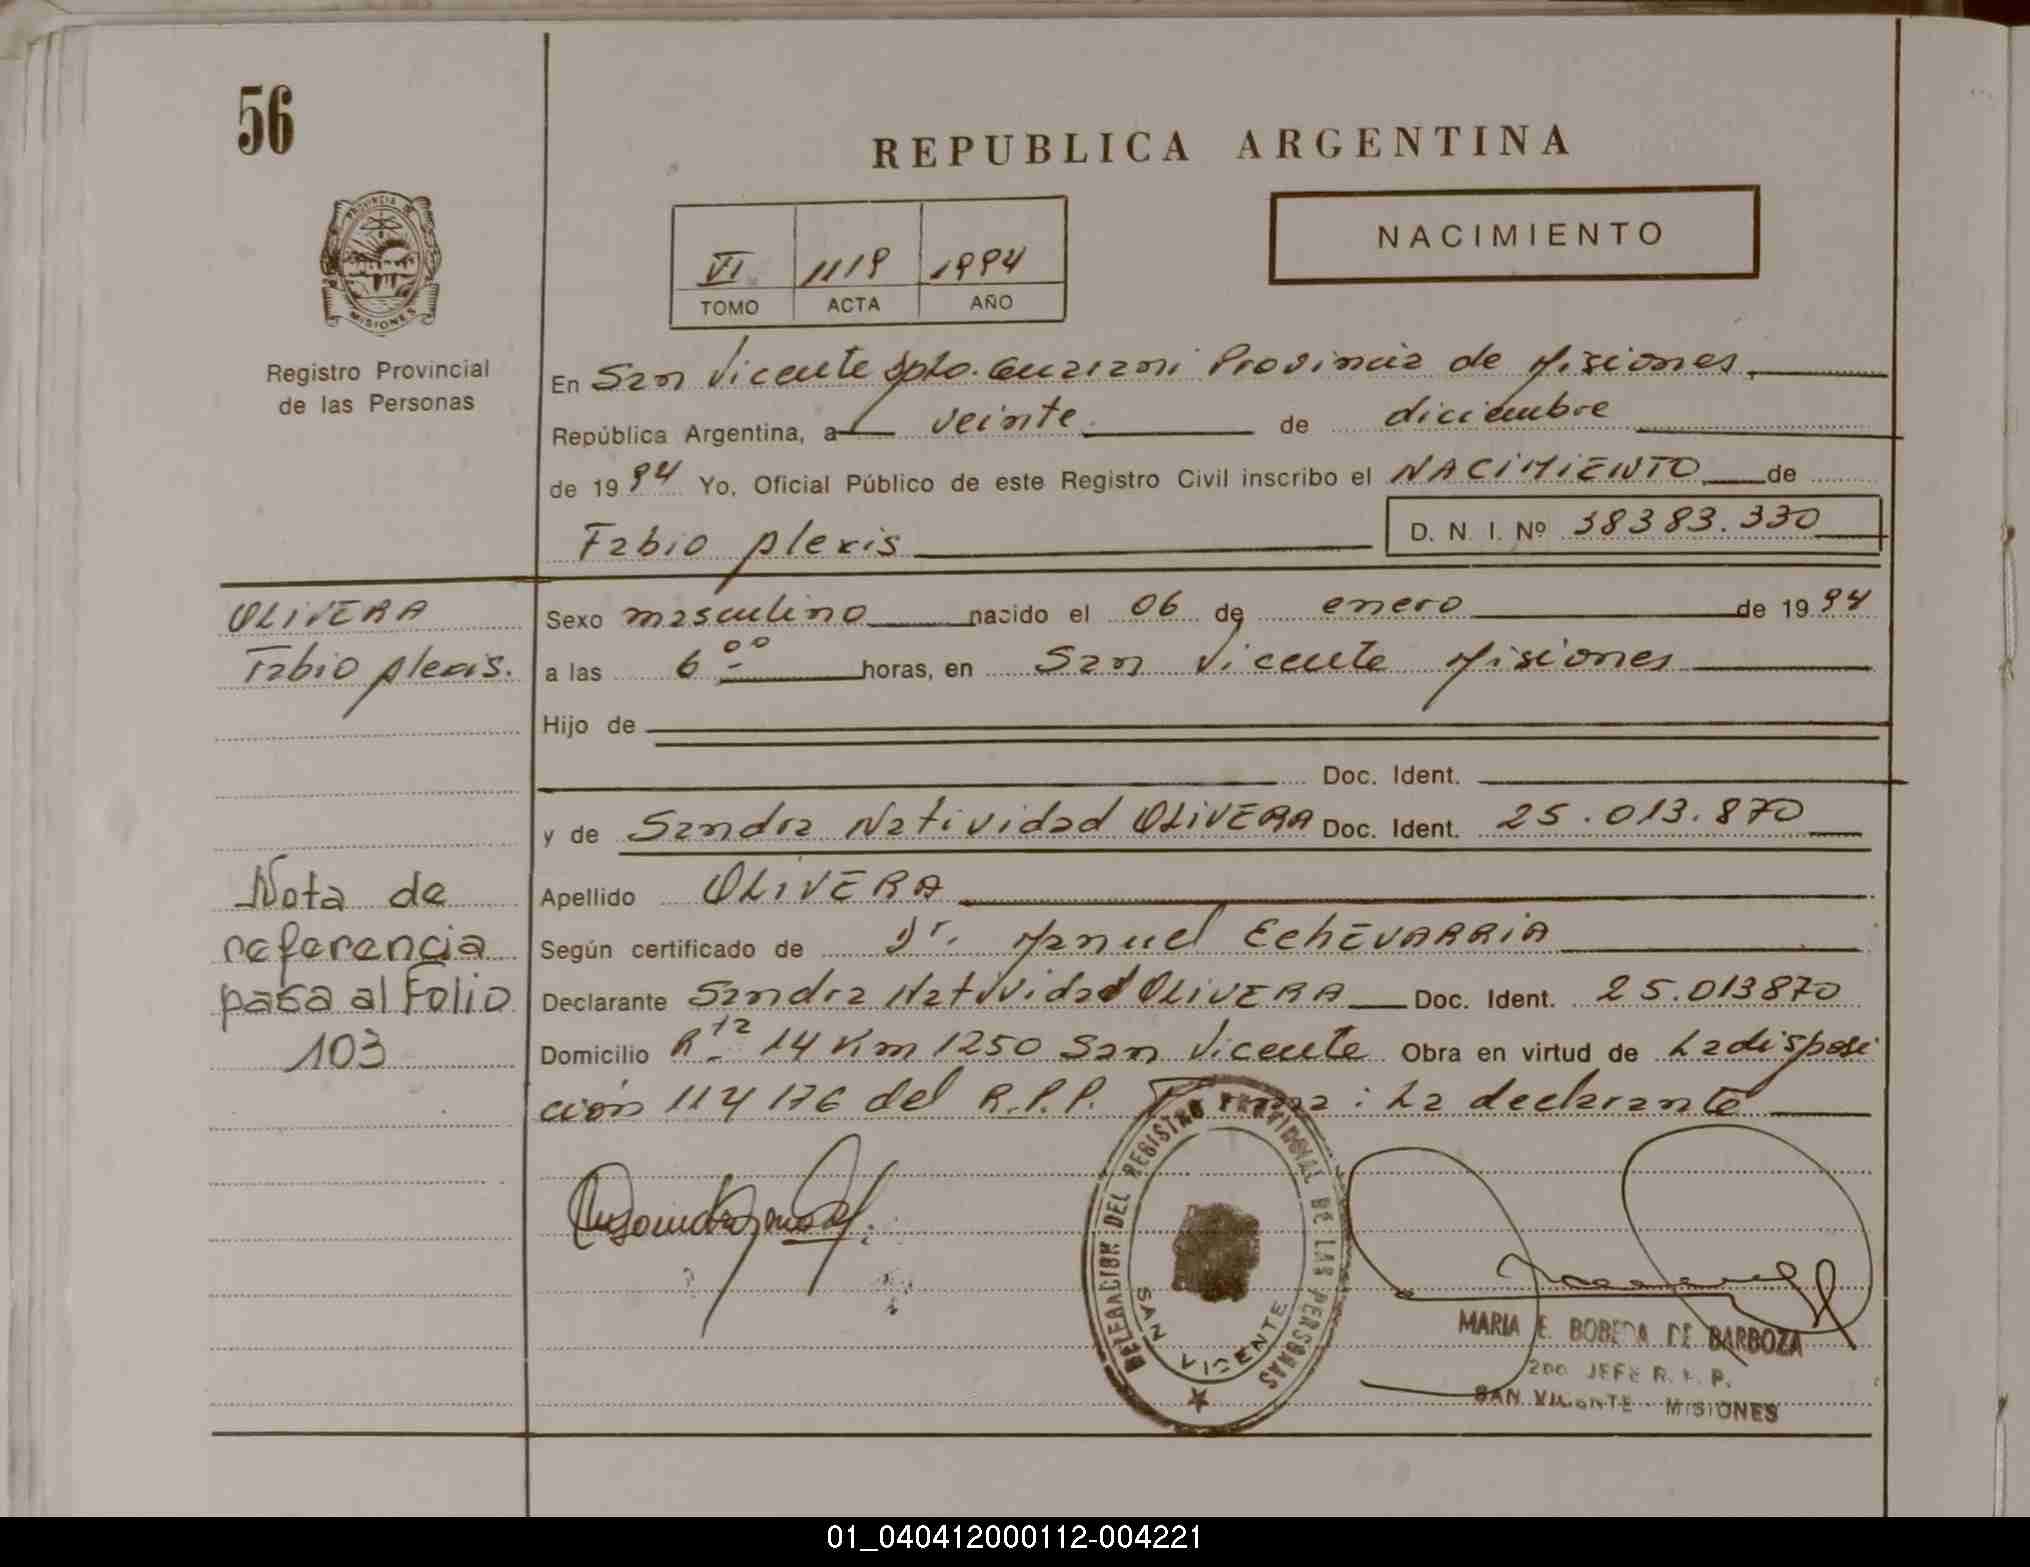 56
REPUBLICA ARGENTINA
PROVINCIA DE
MISIONES
Registro Provincial
de las Personas
VI 1119 1994
TOMO ACTA AÑO
NACIMIENTO
En San Vicente Dpto. Guaraní Provincia de Misiones
República Argentina, a veinte de diciembre
de 1994 Yo, Oficial Público de este Registro Civil inscribo el NACIMIENTO de
Fabio Alexis D. N. I. Nº 38383.330
OLIVERA
Fabio Alexis.
Sexo masculino nacido el 06 de enero de 1994
a las 6 00 horas, en San Vicente Misiones
Hijo de
Doc. Ident.
y de Sandra Natividad OLIVERA Doc. Ident. 25.013.870
Apellido OLIVERA
Según certificado de Dr. Manuel ECHEVARRIA
Declarante Sandra Natividad OLIVERA Doc. Ident. 25.013870
Domicilio Rta 14 Km 1250 San Vicente Obra en virtud de La disposi
ción 114176 del R.P.P. Firma: La declarante
Nota de
referencia
pasa al Folio
103
DELEGACION DEL REGISTRO PROVINCIAL DE LAS PERSONAS
SAN VICENTE
MARIA E. BOBEDA DE BARBOZA
2DO JEFE R. P. P.
SAN VICENTE - MISIONES
01_040412000112-004221